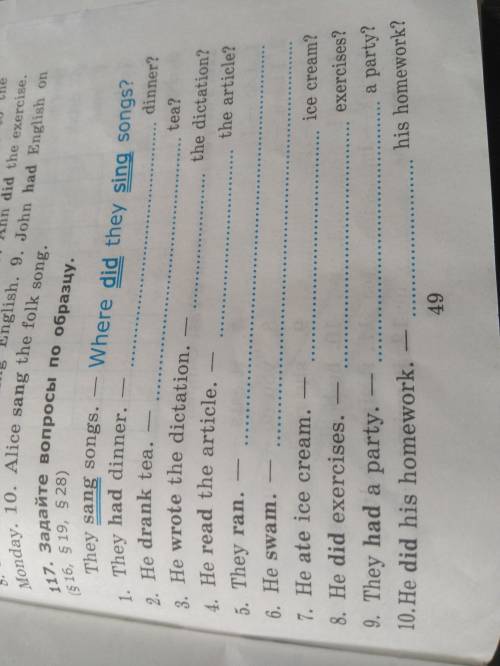 the
English. Ann did the exercise.
Monday. 10. Alice sang the folk song. 9. John had English on
117. Задайте вопросы по образцу.
(§ 16, § 19, § 28)
They sang songs. — Where did they sing songs?
1. They had dinner. — .................... dinner?
2. He drank tea. — .................... tea?
3. He wrote the dictation. — .................... the dictation?
4. He read the article. — .................... the article?
5. They ran. — ....................
6. He swam. — ....................
7. He ate ice cream. — .................... ice cream?
8. He did exercises. — .................... exercises?
9. They had a party. — .................... a party?
10. He did his homework. — .................... his homework?
49